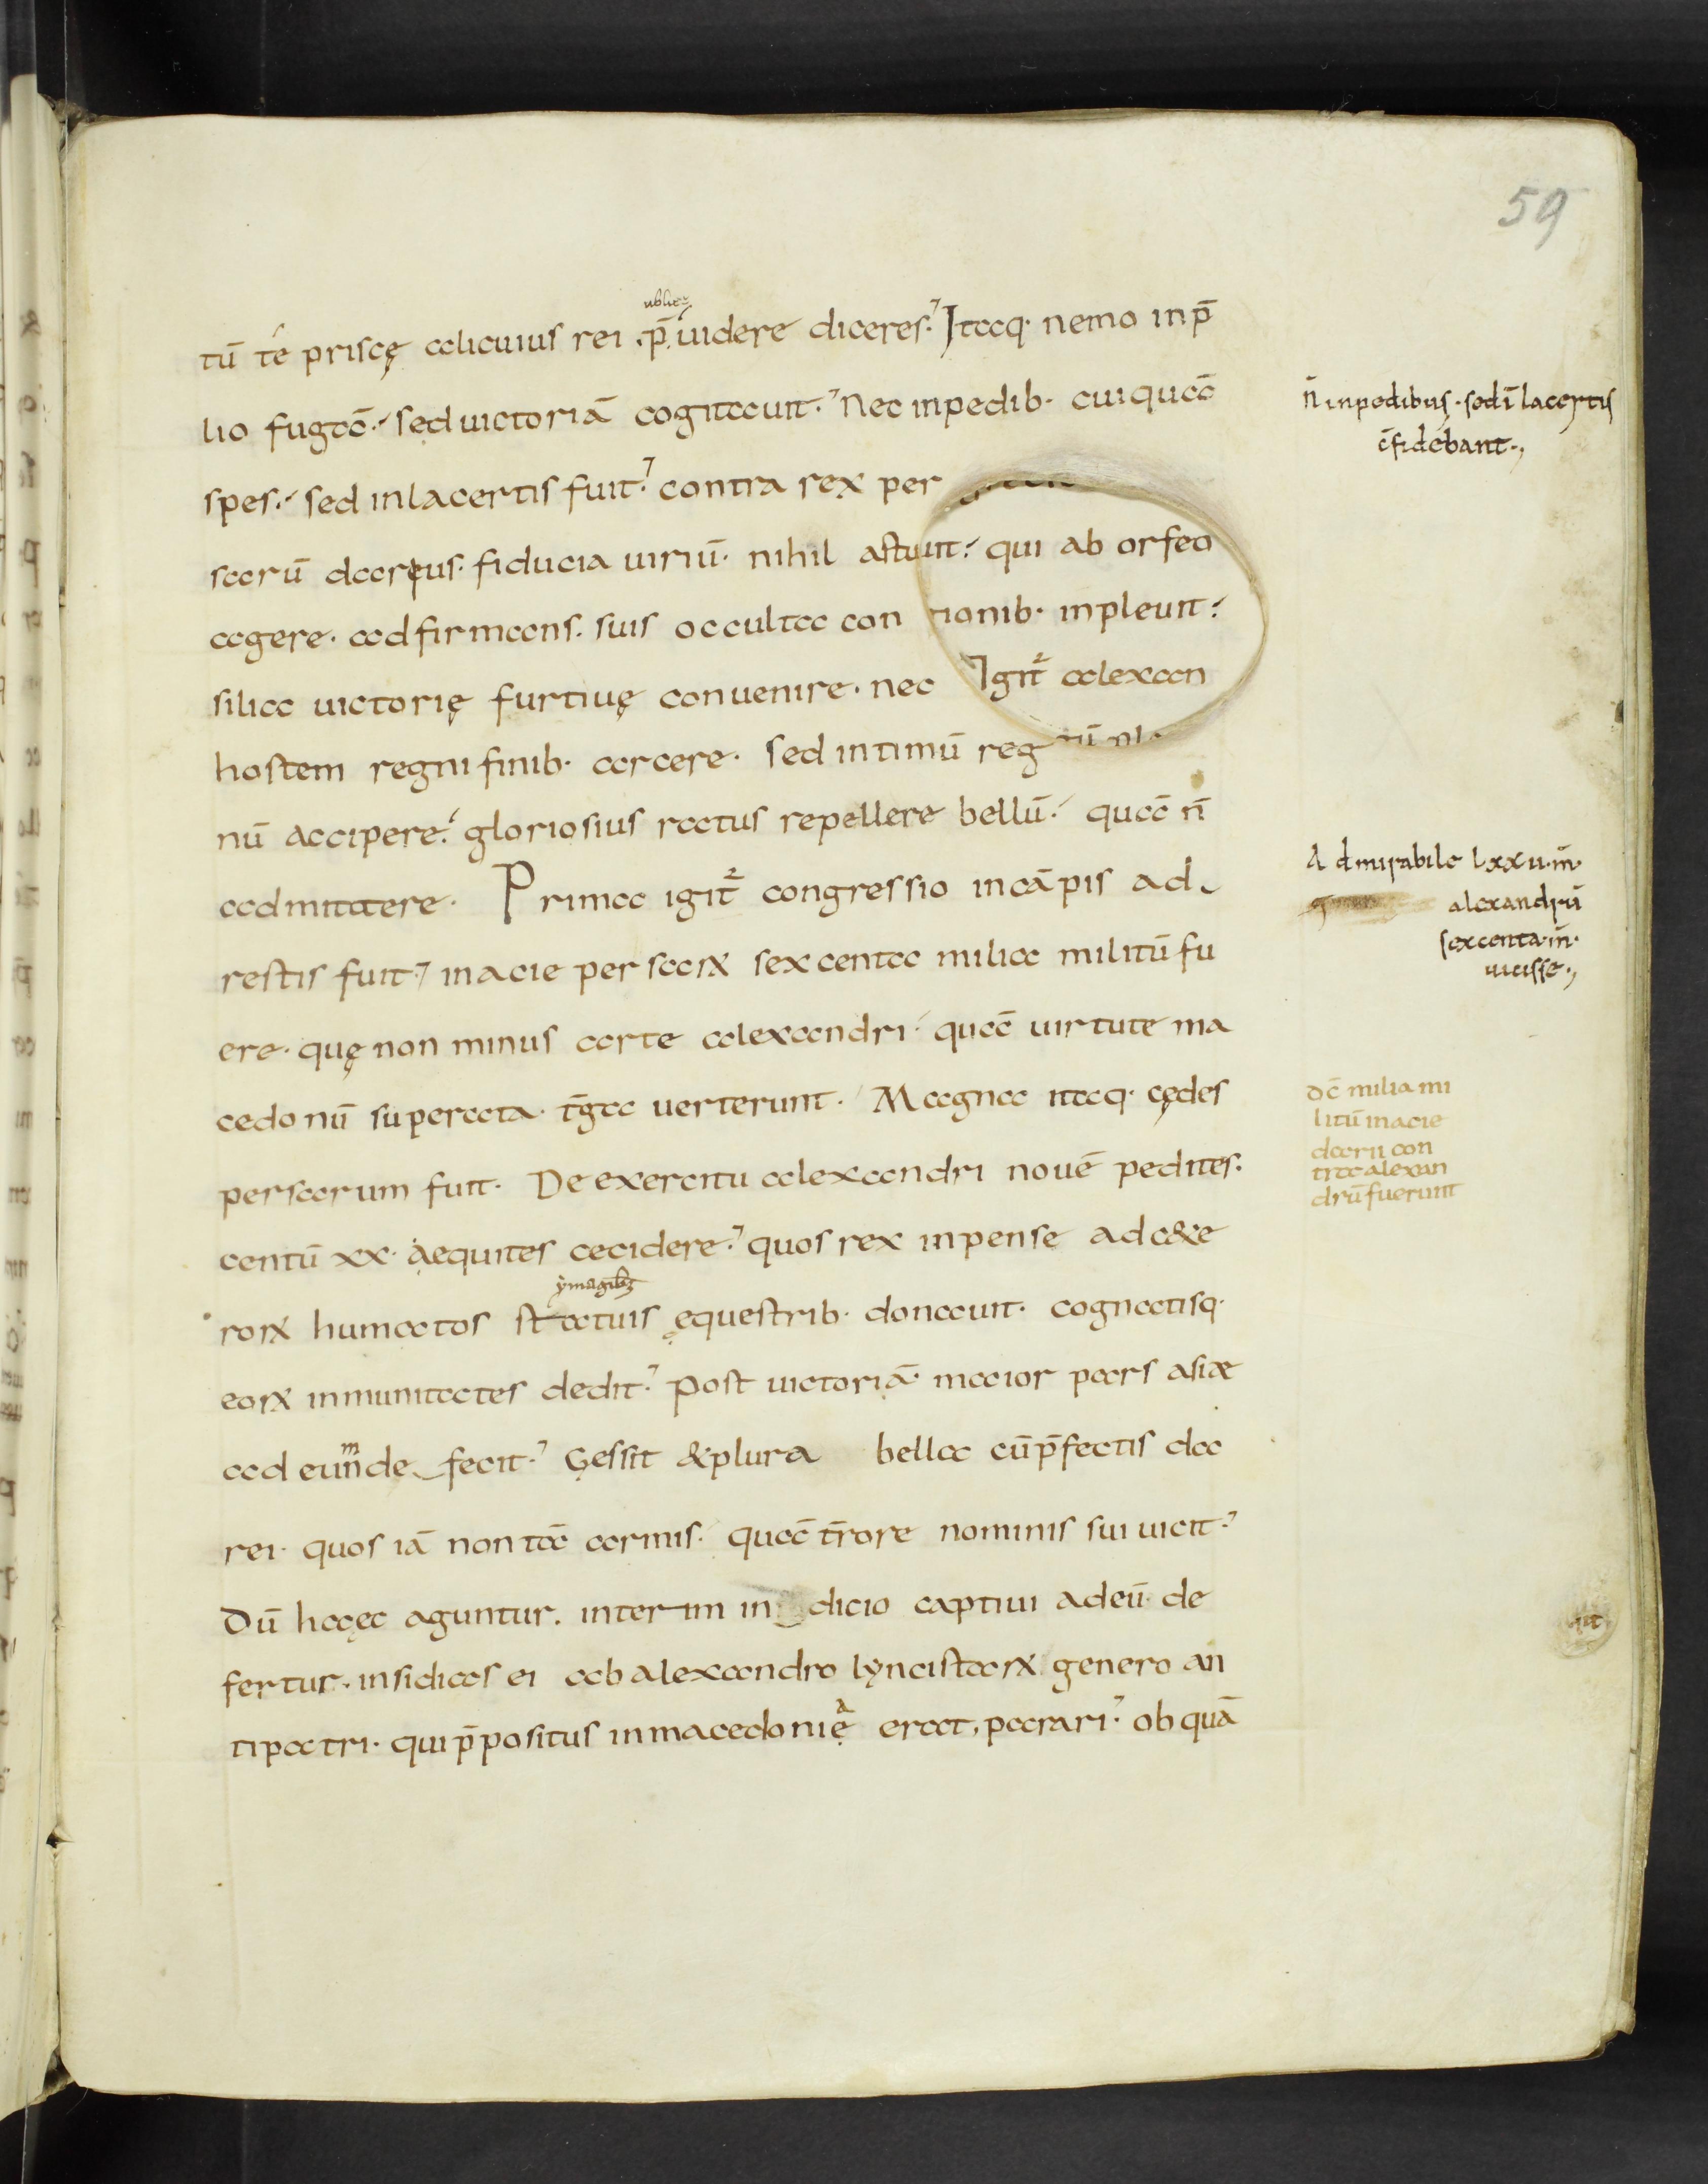 59
tū te priscę alicuius rei p̄uidere diceres. Itaq· nemo inp̄
lio fugā· sed uictoriā cogitauit· Nec inpedib· cuiquā
spes· sed inlacertis fuit· contra rex per
sarū darius· fiducia uiriū· nihil astu
agere· adfirmans· suis occulta con
silia uictorię furtiuę conuenire· nec
hostem regni finib· arcere· sed intimū reg
nū accipere· gloriosius ratus repellere bellū· quā n̄
admittere· Primа igit̄ congressio incāpis ad
restis fuit· inacie persaꝝ sexcenta milia militū fu
ere· quę non minus arte alexandri· quā uirtute ma
cedonū superata· t̄ga uerterunt· Magna itaq· cędes
persarum fuit· De exercitu alexandri nouē pedites·
centū xx· aequites cecidere· quos rex inpense adc&e
roꝝ humatos statuis equestrib· donauit· cognatisq·
eoꝝ inmunitates dedit· post uictoriā· maior pars asiæ
ad eumde fecit· Gessit &plura bella cūp̄fectis da
rei· quos iā non tā armis· quā t̄rore nominis sui uicit·
Dū haęc aguntur· interim in dicio captiui adeū· de
fertur· insidias ei ab alexandro lyncistaꝝ genero an
tipatri· quip̄positus inmacedonię erat, parari· ob quā
uit· qui ab orfeo
tionib· inpleuit·
Igit̄ alexan
n̄ inpedibus· sed ī lacertis
c̄fidebant·,
Admirabile lxxu·m̄·
alexandrū
sexcenta·m̄·
uicisse·,
dc̄ milia mi
litū inacie
darii con
tra alexan
drū fuerunt